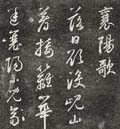 襄陽歌
落日欲沒峴山
著接籬華
迷襄陽小兒齊